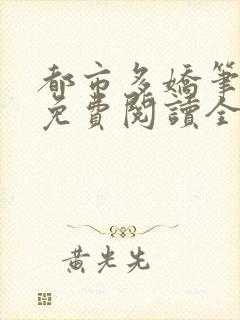 都市多嬌筆
免費閱讀全
黃光先